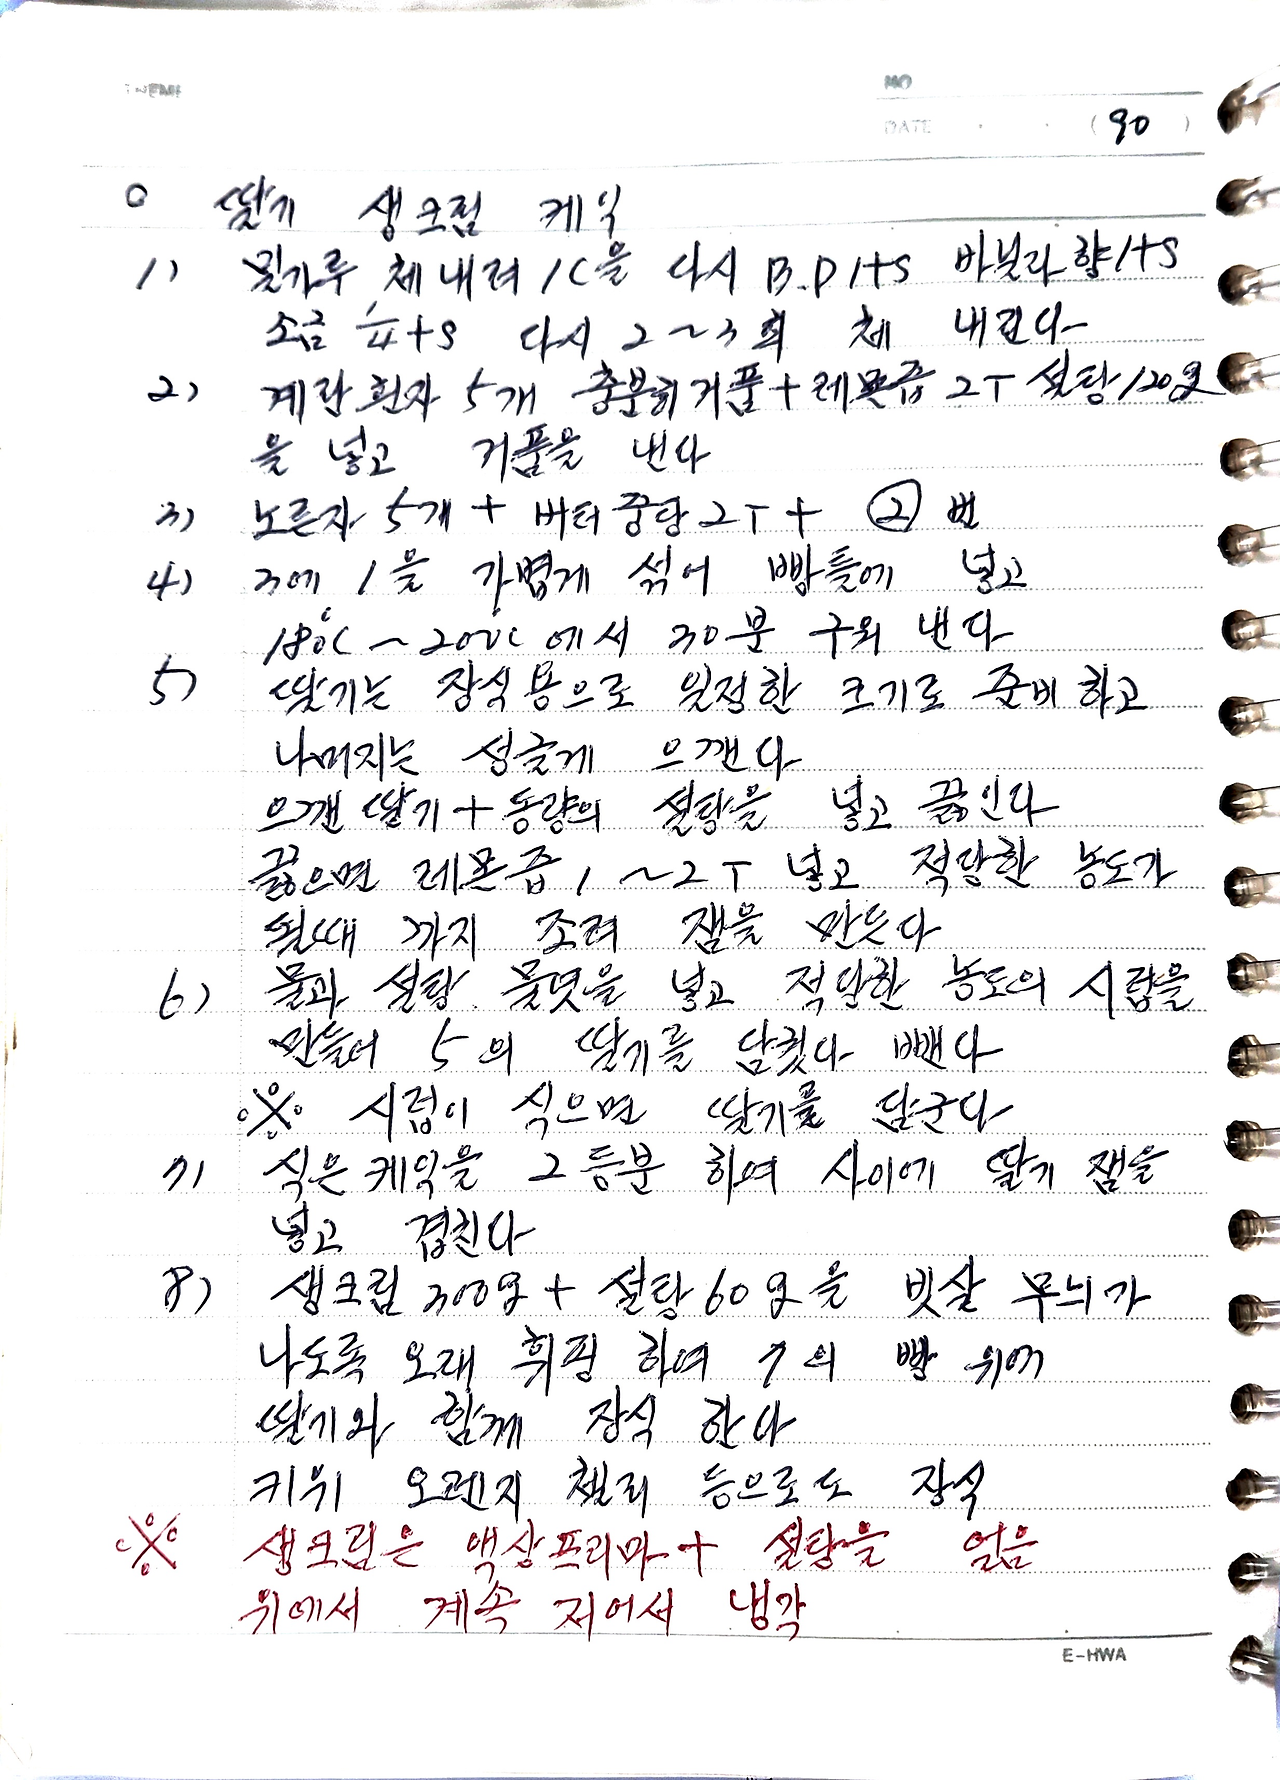 THEME
NO
DATE . . ( 90 )
○ 딸기 생크림 케익
1) 밀가루 체 내려 1C을 다시 B.P 1ts 바닐라향 1ts
소금 1/4ts 다시 2~3회 체 내린다
2) 계란 흰자 5개 충분히 거품+레몬즙 2T 설탕 120g
을 넣고 거품을 낸다
3) 노른자 5개 + 버터 중탕 2T + ② 번
4) 3에 1을 가볍게 섞어 빵틀에 넣고
180℃~200℃에서 30분 구워 낸다
5) 딸기는 장식용으로 일정한 크기로 준비하고
나머지는 성글게 으깬다
으깬 딸기+동량의 설탕을 넣고 끓인다
끓으면 레몬즙 1~2T 넣고 적당한 농도가
될때 까지 조려 잼을 만든다
6) 물과 설탕. 물엿을 넣고 적당한 농도의 시럽을
만들어 5의 딸기를 담궜다 뺀다
※ 시럽이 식으면 딸기를 담군다
7) 식은 케익을 2등분 하여 사이에 딸기 잼을
넣고 겹친다
8) 생크림 300g + 설탕 60g을 빗살 무늬가
나도록 오래 휘핑 하여 7의 빵 위에
딸기와 함께 장식 한다
키위 오렌지 체리 등으로도 장식
※ 생크림은 액상프리마+ 설탕을 얼음
위에서 계속 저어서 냉각
E-HWA